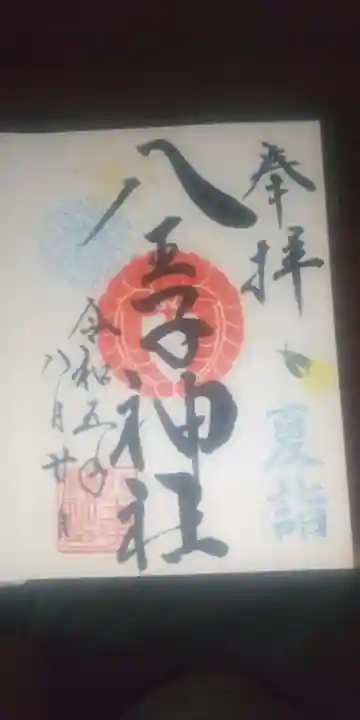 奉拝
夏詣
八王子神社
令和五年
八月廿日